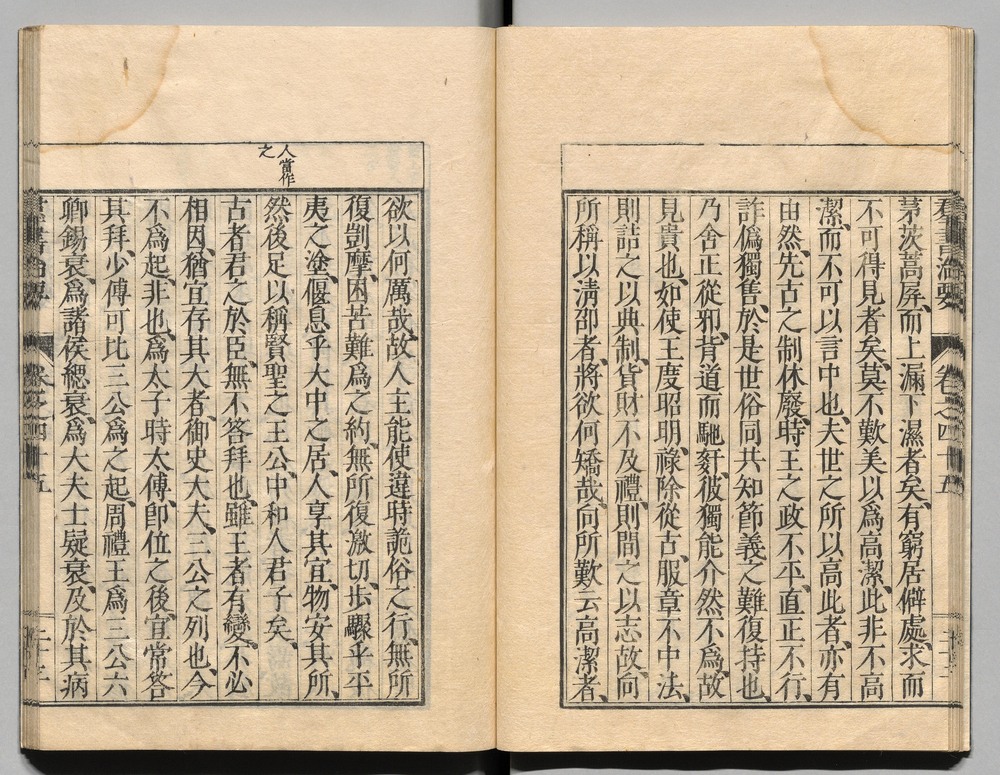 茅茨蒿屏、而上漏下濕者矣、有窮居僻處、求而
不可得見者矣、莫不歎美以爲高潔、此非不高
潔、而不可以言中也、夫世之所以高此者、亦有
由然、先古之制休廢、時王之政不平、直正不行、
詐僞獨售、於是世俗同共知節義之難復持也、
乃舍正從邪、背道而馳姧、彼獨能介然不爲、故
見貴也、如使王度昭明、祿除從古、服章不中法、
則詰之以典制、貨財不及禮、則間之以志故、向
所稱以淸卲者、將欲何矯哉、向所歎云高潔者、
欲以何厲哉、故人主能使違時詭俗之行、無所
復剴摩、困苦難爲之約、無所復激切、步驟乎平
夷之塗、偃息乎大中之居、人享其宜、物安其所、
然後足以稱賢聖之王公、中和人君子矣、
人當作
之
古者君之於臣、無不答拜也、雖王者有變、不必
相因、猶宜存其大者、御史大夫、三公之列也、今
不爲起、非也、爲太子時太傅、卽位之後、宜常答
其拜、少傅可比三公爲之起、周禮王爲三公六
卿錫衰、爲諸侯緦衰、爲大夫士疑衰、及於其病
羣書治要 卷之四十五 二十三